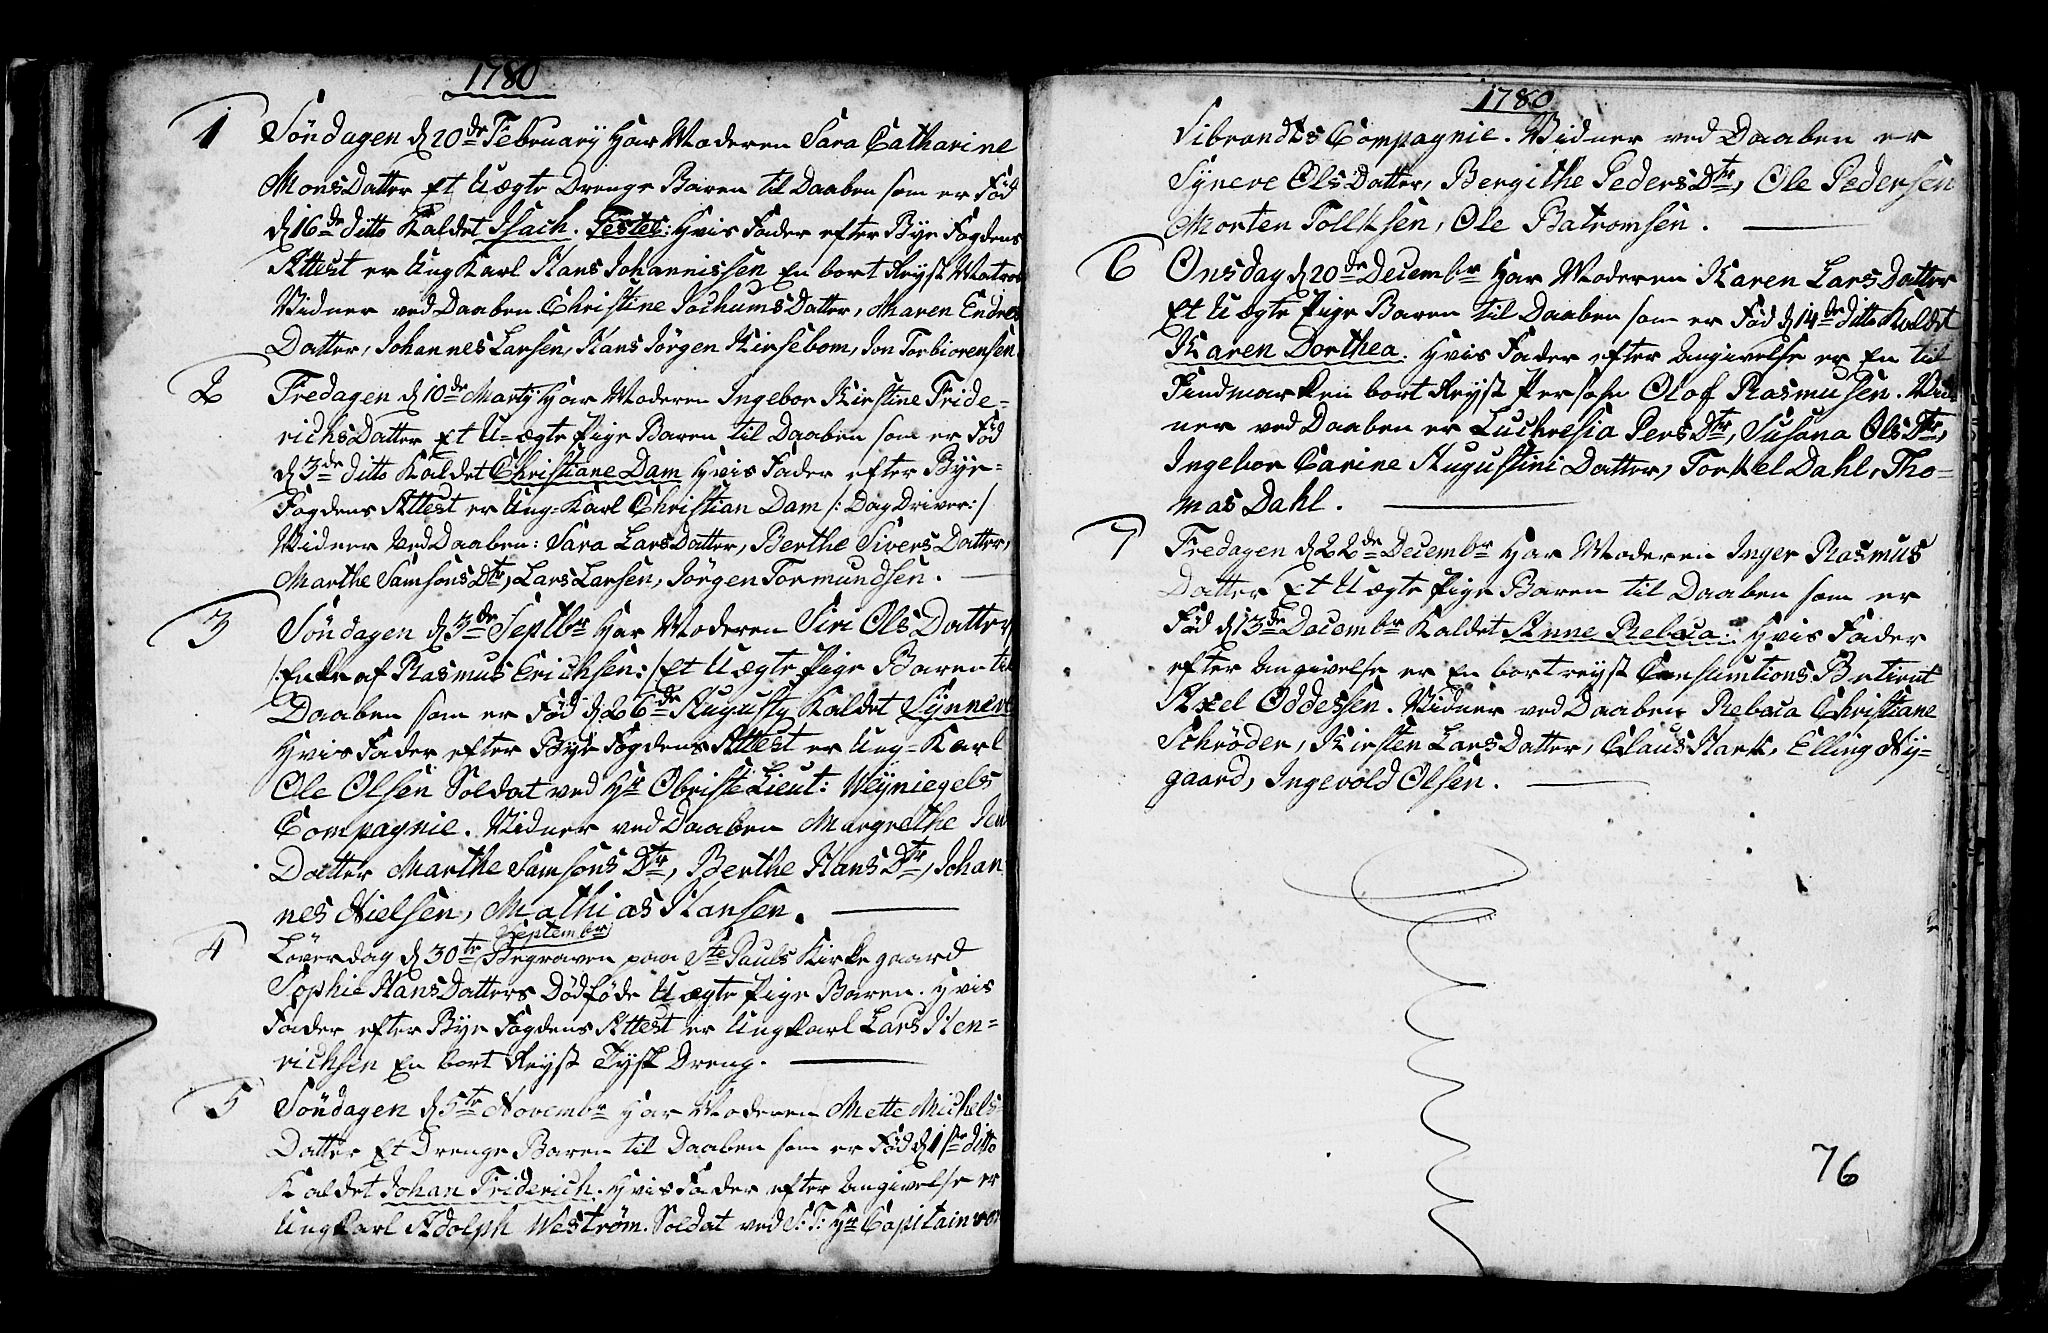 1780
1 Söndagen d 20de Februarÿ Har Moderen Sara Catharine
MonsDatter Et Uægte Drenge Baren til Daaben som er Föd
d 16de ditto Kaldet Isach. Testes: Hvis Fader efter Bye Fogdens
Attest er Ung Karl Hans Johannissen En bort Reyst Matros
Vidner ved Daaben Christine JochumsDatter, Maren Endres
Datter, Johannes Larsen, Hans Jörgen Kirsebom, Jon Torbiorensen
2 Fredagen d 10de Martÿ Har Moderen Ingebor Kirstine Fride-
richsDatter Et U=ægte Pige Baren til Daaben som er Föd
d 3de ditto Kaldet Christiane Dam Hvis Fader efter Bye-
Fogdens Attest er Ung=Karl Christian Dam /: Dag Driver:/
Vidner Ved Daaben: Sara LarsDatter, Berthe SiversDatter,
Marthe Samsons Dtr, Lars Larsen, Jörgen Tormundsen.
3 Söndagen d 3de Septbr Har Moderen Siri OlsDatter
/:Enke af Rasmus Erichsen:/ Et Uægte Pige Baren til
Daaben som er Föd d 26de Augusty Kaldet Synneve
Hvis Fader efter Bye Fogdens Attest er Ung=Karl
Ole Olsen Soldat ved Hr ObristeLieut: Weyniegels
Compagnie. Vidner ved Daaben Margrethe
Datter Marthe Samsons Dtr, Berthe Hans Dtr, Johan
nes Nielsen, Mathias Hansen.
Septembr
4 Löverdag d 30tr Begraven paa Ste Pauls Kirkegaard
Sophie HansDatters Dödföde Uægte Pige Baren. Hvis
Fader efter Bye Fogdens Attest er Ungkarl Lars Hen-
richsen En bort Reyst Tysk Dreng.
5 Söndagen d 5te Novembr Har Moderen Mette Michels-
Datter Et Drenge Baren til Daaben som er Föd d 1ste ditto
Kaldet Johan Friderich. Hvis Fader efter Angivelse er
UngKarl Adolph Weström. Soldat ved S: T: Hr Capitain von
1780
Sibrandts Compagnie. Vidner ved Daaben er
Syneve OlsDatter, Bergithe Peders Dtr, Ole Pedersen
Morten Tollksen, Ole Batromsen.
6 Onsdag d 20de Decembr Har Moderen Karen LarsDatter
Et Uægte Pige Baren til Daaben som er Föd d 14de ditto Kaldet
Karen Dorthea. Hvis Fader efter Angivelse er En til
Findmarken bort Reyst Person Olof Rasmusen. Vid
ner ved Daaben er Luchresia Pers Dtr, Susana Ols Dtr,
Ingebor Carine Augustini Datter, Torkel Dahl, Tho-
mas Dahl.
7 Fredagen d 22de Decembr Har Moderen Inger Rasmus
Datter Et Uægte Pige Baren til Daaben som er
Föd d 13de Decembr Kaldet Anne Rebeca. Hvis Fader
efter Angivelse er En bortreyst Consumtions Betient
Axel Oddessen. Vidner ved Daaben Rebeca Christiane
Schröder, Kirsten LarsDatter, Claus Hark, Elling Ny-
gaard, Ingevold Olsen.
76